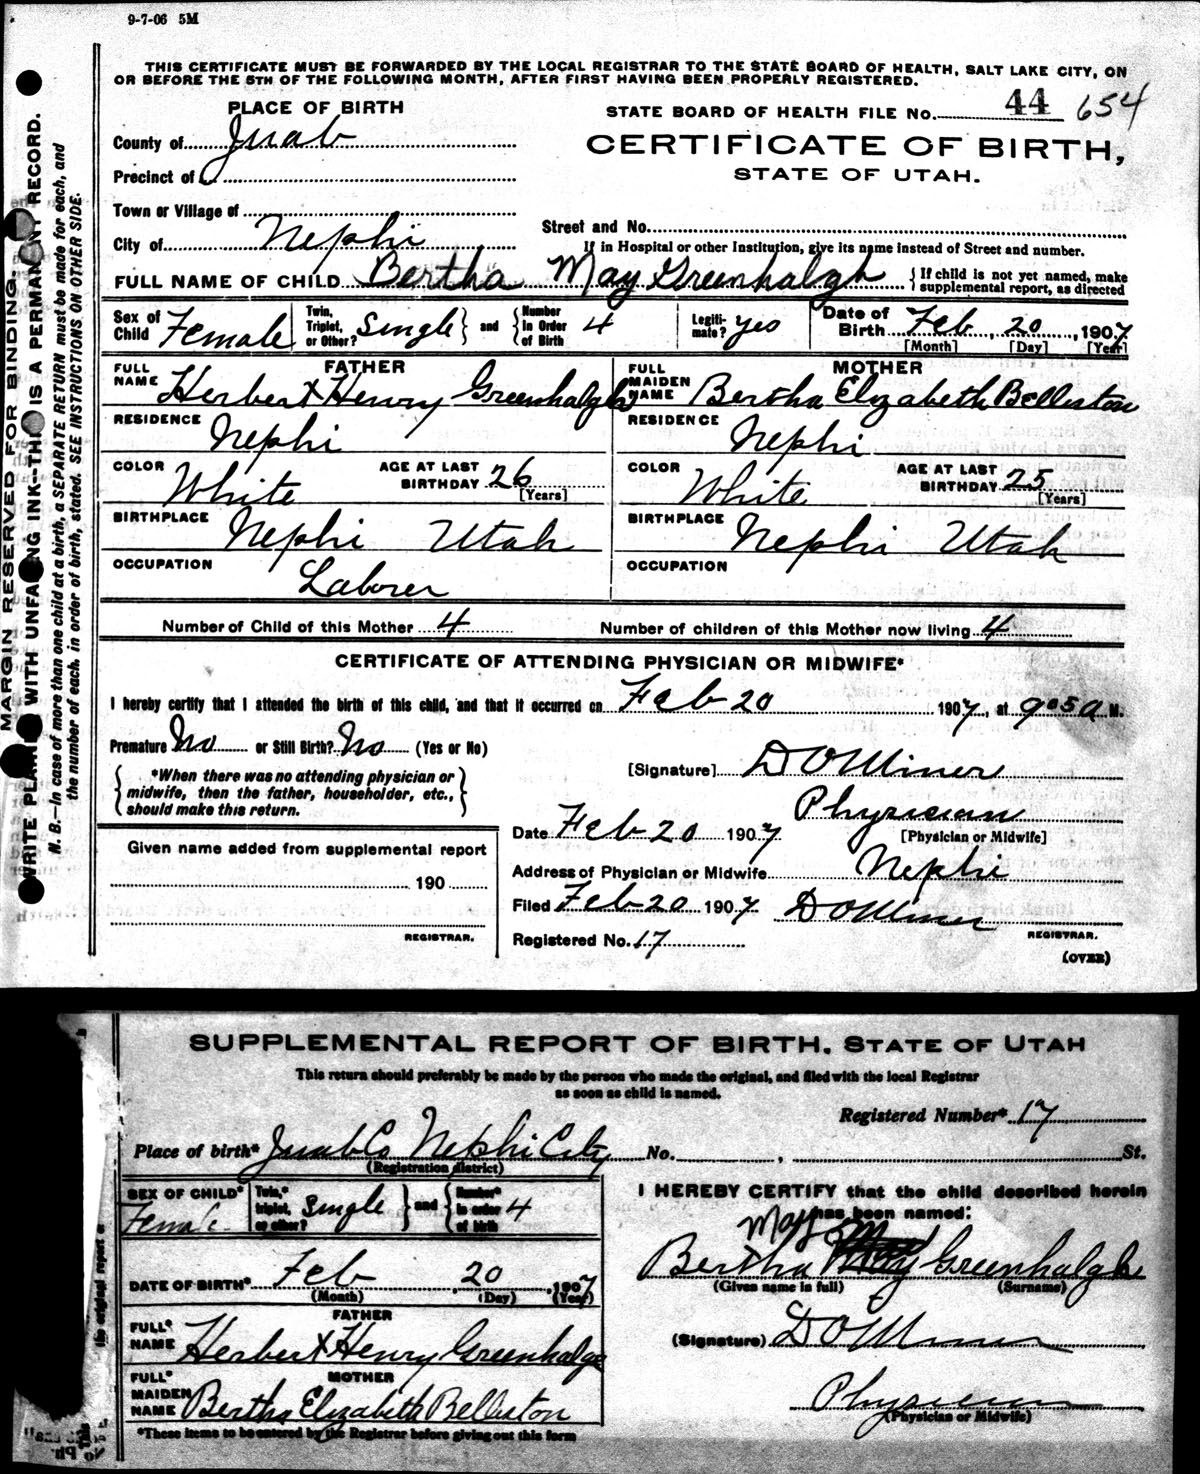 9-7-06 5M
THIS CERTIFICATE MUST BE FORWARDED BY THE LOCAL REGISTRAR TO THE STATE BOARD OF HEALTH, SALT LAKE CITY, ON
OR BEFORE THE 5TH OF THE FOLLOWING MONTH, AFTER FIRST HAVING BEEN PROPERLY REGISTERED.
PLACE OF BIRTH
STATE BOARD OF HEALTH FILE No. 44 654
County of Juab
CERTIFICATE OF BIRTH,
STATE OF UTAH.
Precinct of
Town or Village of
Street and No.
City of Nephi
If in Hospital or other Institution, give its name instead of Street and number.
FULL NAME OF CHILD Bertha May Greenhalgh { If child is not yet named, make supplemental report, as directed
Sex of Child Female Twin, Triplet, or Other? Single } and { Number in Order of Birth 4 Legiti-mate? yes Date of Birth Feb, 20, 1907
[Month] [Day] [Year]
FATHER
MOTHER
FULL NAME Herbert Henry Greenhalgh
FULL MAIDEN NAME Bertha Elizabeth Belliston
RESIDENCE Nephi
RESIDENCE Nephi
COLOR White AGE AT LAST BIRTHDAY 26 [Years]
COLOR White AGE AT LAST BIRTHDAY 25 [Years]
BIRTHPLACE Nephi Utah
BIRTHPLACE Nephi Utah
OCCUPATION Laborer
OCCUPATION
Number of Child of this Mother 4 Number of children of this Mother now living 4
CERTIFICATE OF ATTENDING PHYSICIAN OR MIDWIFE*
I hereby certify that I attended the birth of this child, and that it occurred on Feb 20 1907, at 9 05 a M.
Premature No or Still Birth? No (Yes or No)
[Signature] D O Miner
{ *When there was no attending physician or
midwife, then the father, householder, etc.,
should make this return. }
Physician
[Physician or Midwife]
Date Feb 20 1907
Address of Physician or Midwife Nephi
Filed Feb 20 1907 D O Miner
REGISTRAR.
Registered No. 17
(OVER)
Given name added from supplemental report
190
REGISTRAR.
MARGIN RESERVED FOR BINDING.
WRITE PLAINLY WITH UNFADING INK--THIS IS A PERMANENT RECORD.
N. B.—In case of more than one child at a birth, a SEPARATE RETURN must be made for each, and
the number of each, in order of birth, stated. SEE INSTRUCTIONS ON OTHER SIDE.
SUPPLEMENTAL REPORT OF BIRTH, STATE OF UTAH
This return should preferably be made by the person who made the original, and filed with the local Registrar
as soon as child is named.
Registered Number* 17
Place of birth* Juab Co Nephi City No. , St.
(Registration district)
SEX OF CHILD* Female Twin,* triplet, or other? Single } and { Number* in order of birth 4
I HEREBY CERTIFY that the child described herein
has been named:
May
Bertha May Greenhalgh
(Given name in full) (Surname)
DATE OF BIRTH* Feb 20, 1907
(Month) (Day) (Year)
FATHER
FULL* NAME Herbert Henry Greenhalge
(Signature) D O Miner
MOTHER
FULL* MAIDEN NAME Bertha Elizabeth Belliston
Physician
(Physician or Midwife)
*These items to be entered by the Registrar before giving out this form
the original report a